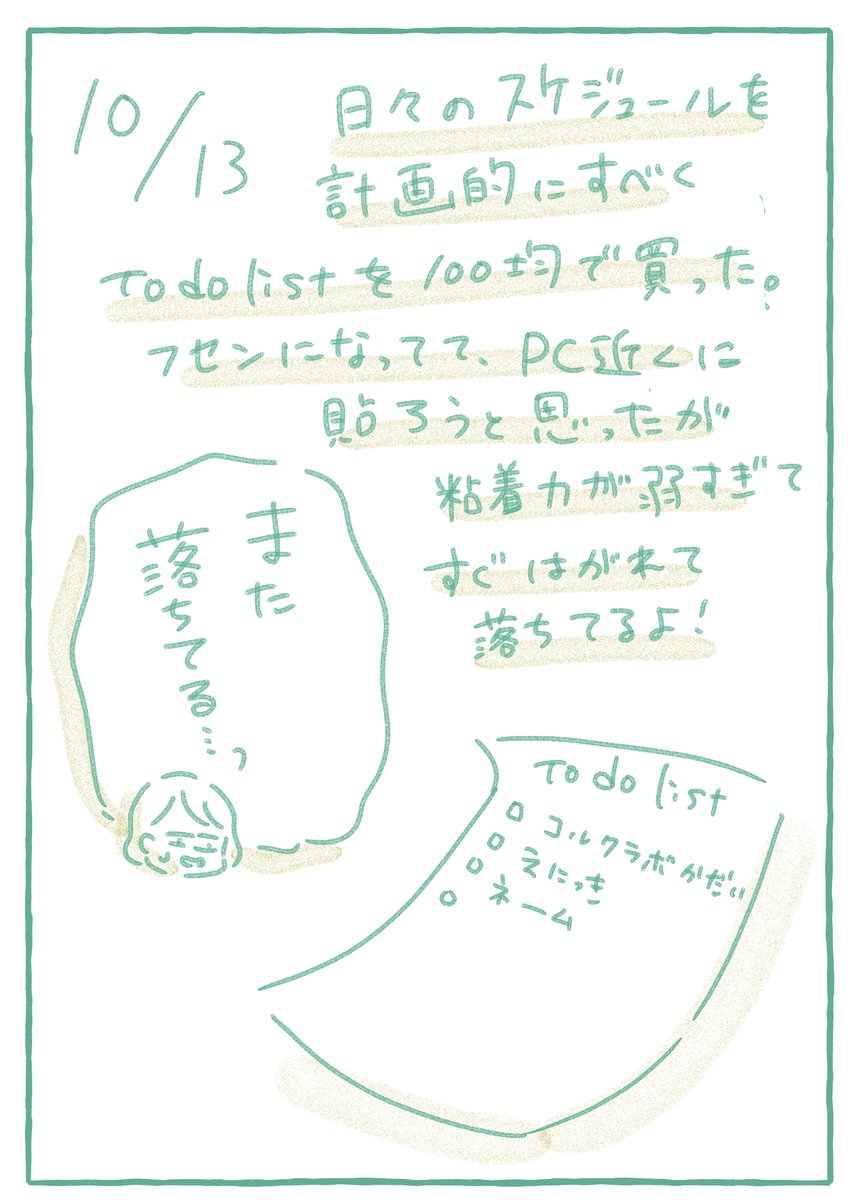 10/13
日々のスケジュールを
計画的にすべく
To do listを100均で買った。
フセンになってて、PC近くに
貼ろうと思ったが
粘着力が弱すぎて
すぐはがれて
落ちてるよ!
また
落ちてる…っ
To do list
コルクラボかだい
えにっき
ネーム